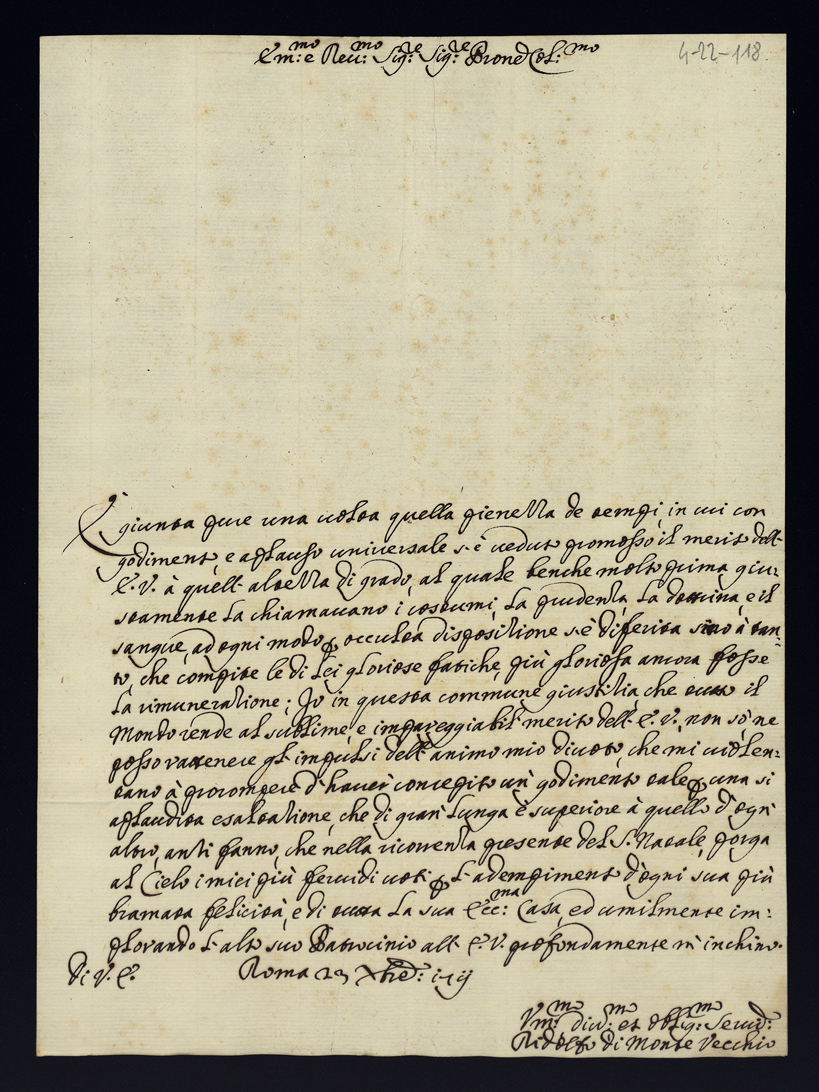 Em:mo e Reu:mo Sig:re Sig:re Pron Col:mo
4-22-118.
È giunta pure una uolta quella pienezza de tempi, in cui con
godimento, e aplauso uniuersale s'è ueduto promosso il merito dell'
E. V. à quell' altezza di grado, al quale benche molto prima gius:
stamente La chiamauano i costumi, La prudenza, La dottrina, e il
sangue, ad ogni modo p occulta disposizione s'è diferita sino à tan:
to, che compite le di Lei gloriose fatiche, più gloriosa ancora fosse
La rimunerazione; Io in questa commune giustizia, che tutto il
Mondo rende al sublime, e impareggiabil merito dell' E. V. non sò ne
posso rattenere gl' impulsi dell' animo mio diuoto, che mi uiolen:
tano à prorompere d' hauer concepito un' godimento tale p una sì
aplaudita esaltazione, che di gran' Lunga è superiore à quello d' ogn'
altro, anzi fanno, che nella ricorrenza presente del S. Natale, porga
al Cielo i miei più feruidi uoti p L' adempimento d' ogni sua più
bramata felicità, e di tutta La sua Ecc:ma Casa, ed umilmente im:
plorando L' alto suo Patrocinio all' E. V. profondamente m' inchino.
Di V. E. Roma 23 Xbre:
Vm:mo diu:mo et oblig:mo Seru:
Ridolfo di Monte Vecchio